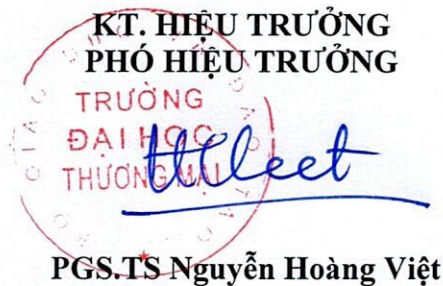 KT. HIỆU TRƯỞNG
PHÓ HIỆU TRƯỞNG
TRƯỜNG
ĐẠI HỌC
THƯƠNG MẠI
PGS.TS Nguyễn Hoàng Việt